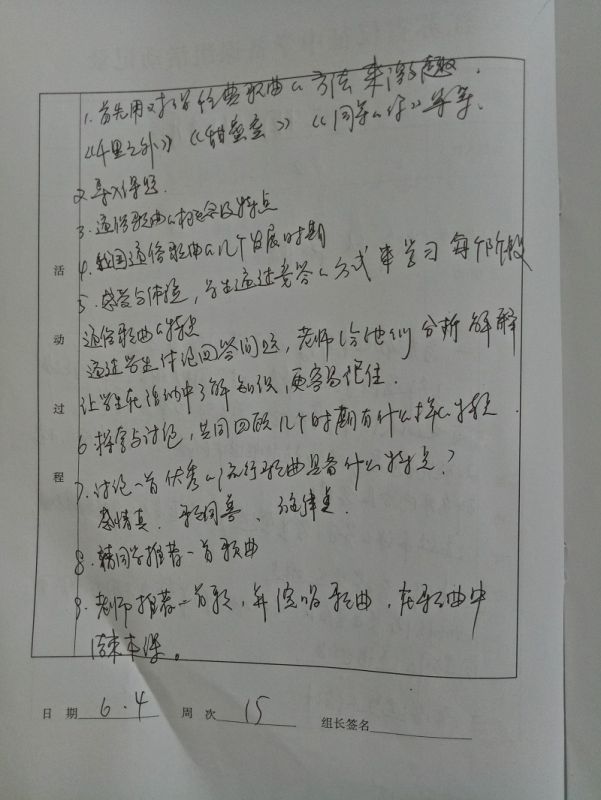 1. 首先用对唱经典歌曲的方法来激趣.
《千里之外》《甜蜜蜜》《同桌的你》等等.
2. 导入课题.
3. 通俗歌曲的概念及特点
4. 我国通俗歌曲的几个发展时期
5. 感受与体验, 学生通过竞答的方式来学习每个阶段
通俗歌曲的特点
通过学生讨论回答问题, 老师给他们分析解释
让学生在活动中了解知识, 更容易记住.
6 探究与讨论, 共同回顾几个时期有什么样的特征.
7. 讨论一首优秀的流行歌曲具备什么特点?
感情真、歌词美、旋律美.
8. 请同学推荐一首歌曲
9. 老师推荐一首歌, 并演唱歌曲, 在歌曲中
结束本课。
活动过程
日期 6.4 周次 15 组长签名